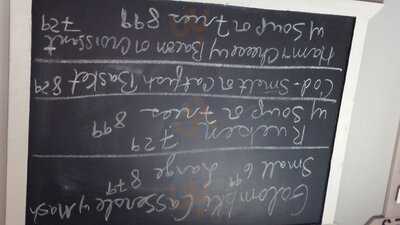 Golompki Casserole w/ Mash
Small 6.99 Large 8.79
Rueben 7.29
w/ Soup or Fries 8.99
Cod - Smelt or Catfish Basket 8.29
Ham & Cheese w/ Bacon on Croissant 7.29
w/ Soup or Fries 8.99